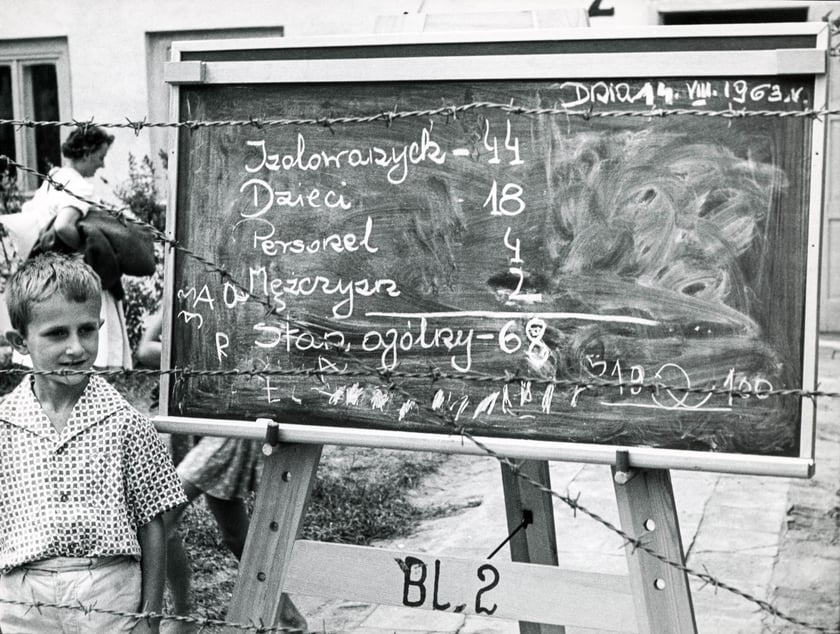 DNIA 14. VIII. 1963.r.
Izolowanych - 44
Dzieci 18
Personel 4
Mężczyzn 2
Stan ogólny - 68
BL. 2